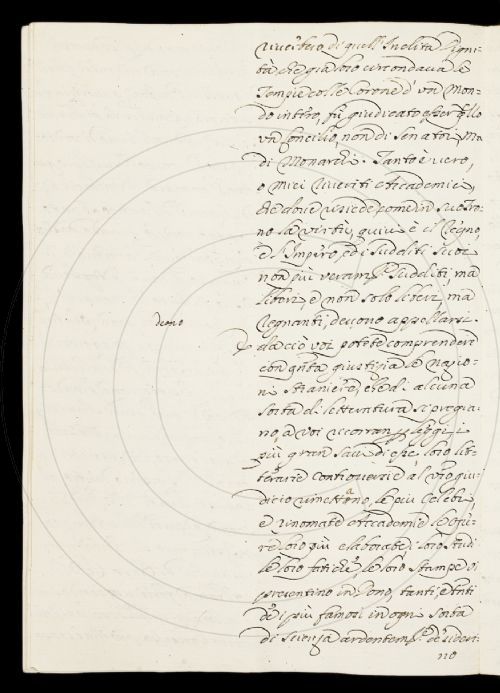 riverbero di quell'Inclita Digni-
tà che già loro circondava le
Tempie colle Corone d'un Mon-
do intero, fù giudicato esser quello
un Concilio, non di Senatori, Ma
di Monarchi. Tanto è vero,
o miei Riveriti Accademici,
che dove risiede come in suo Tro-
no la virtù, quivi è il Regno,
è l'Impero, ed i sudditi suoi
non più veram.te sudditi, ma
liberi, è non solo liberi, ma
Regnanti, devono appellarsi.
demo
da ciò voi potete comprendere
con q.nta giustizia le nazio-
ni straniere, che di alcuna
sorta di letteratura si pregia-
no, a voi ricorran p. legge i
più gran Savi di esse loro let-
terarie controversie al vr̃o giu-
dicio rimettono, le più Celebri,
è rinomate Accademie le Ope-
re loro più elaborate i loro studi
le loro fatiche, le loro stampe vi
presentino in dono, tanti, è tnti
de' i più famosi in ogni sorta
di scienza ardentem.te desideri-
no